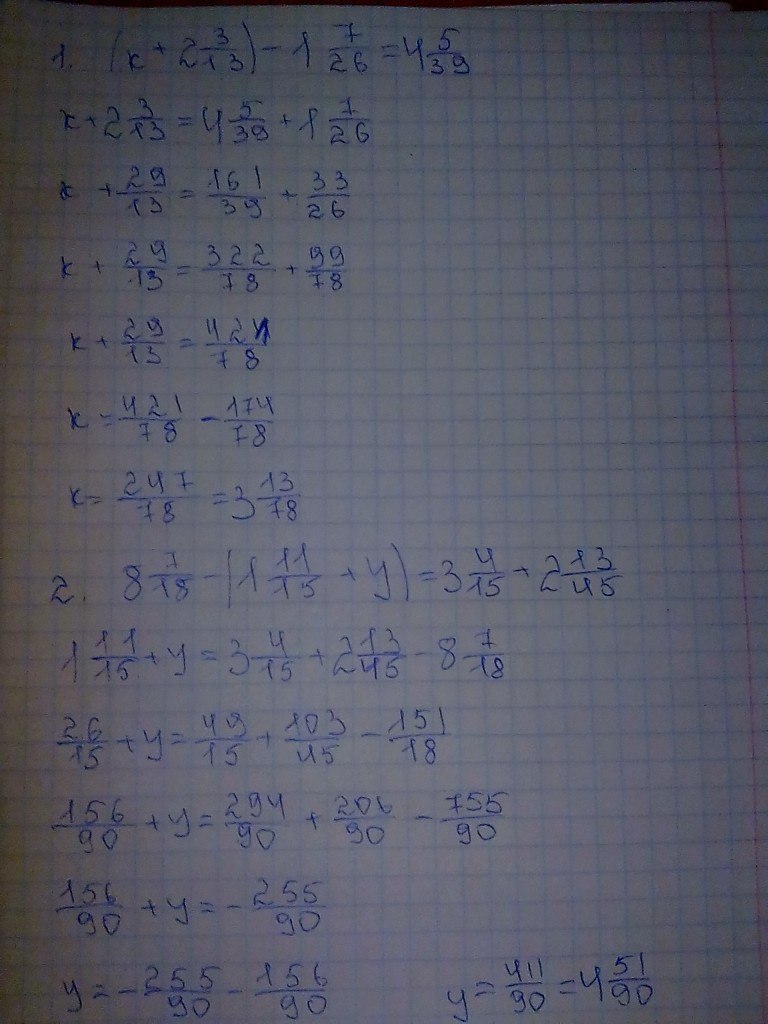 1. (x + 2 3/13) - 1 7/26 = 4 5/39
x + 2 3/13 = 4 5/39 + 1 7/26
x + 29/13 = 161/39 + 33/26
x + 29/13 = 322/78 + 99/78
x + 29/13 = 421/78
x = 421/78 - 174/78
x = 247/78 = 3 13/78
2. 8 7/18 - (1 11/15 + y) = 3 4/15 + 2 13/45
1 11/15 + y = 3 4/15 + 2 13/45 - 8 7/18
26/15 + y = 49/15 + 103/45 - 151/18
156/90 + y = 294/90 + 206/90 - 755/90
156/90 + y = - 255/90
y = - 255/90 - 156/90 y = 411/90 = 4 51/90